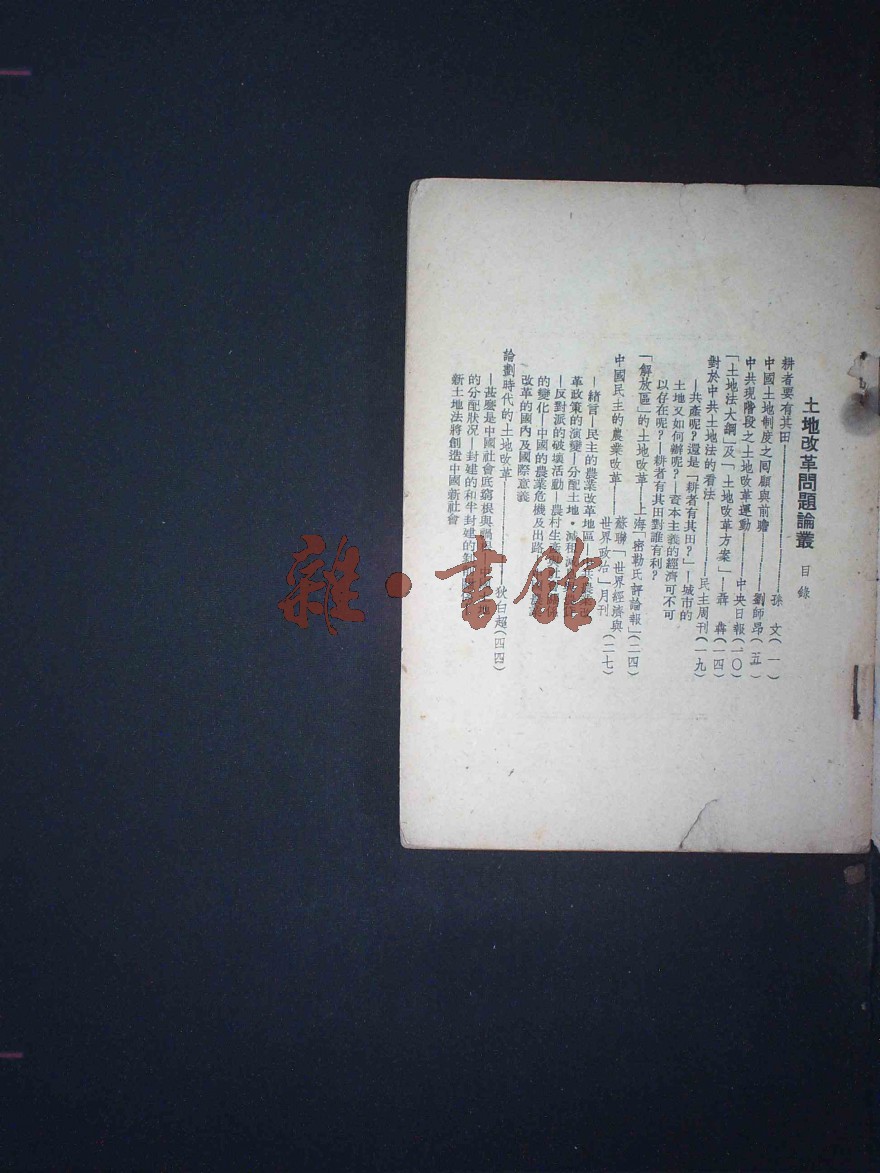 土地改革問題論叢 目錄
耕者要有其田——孫 文(一)
中國土地制度之囘顧與前瞻——劉師昂(五)
中共現階段之土地改革運動——中央日報(一〇)
「土地法大綱」及「土地改革方案」—聶 犇(一四)
對於中共土地法的看法——民主周刊(一九)
—共產呢?還是「耕者有其田?」—城市的
土地又如何辦呢?—資本主義的經濟可不可
以存在呢?—耕者有其田對誰有利?
「解放區」的土地改革—上海「密勒氏評論報」(二四)
中國民主的農業改革——蘇聯「世界經濟與
世界政治」月刊(二七)
—緒言—民主的農業改革地區
革政策的演變—分配土地・減租
—反對派的破壞活動—農村生產
的變化—中國的農業危機及出路
改革的國內及國際意義
論劃時代的土地改革——狄白超(四四)
—甚麼是中國社會底窮根與禍
的分配狀况—封建的和半封建的制
新土地法將創造中國新社會
雜・書館